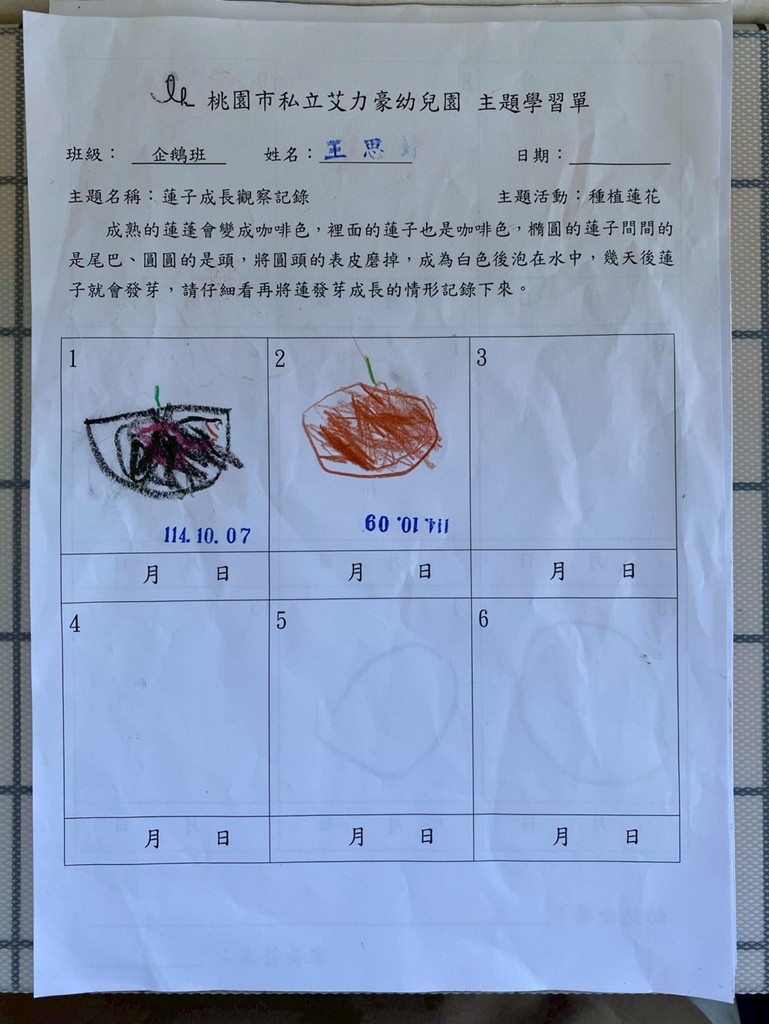 桃園市私立艾力豪幼兒園 主題學習單
班級： 企鵝班 姓名： 王思 日期：
主題名稱：蓮子成長觀察記錄 主題活動：種植蓮花
成熟的蓮蓬會變成咖啡色，裡面的蓮子也是咖啡色，橢圓的蓮子間間的
是尾巴、圓圓的是頭，將圓頭的表皮磨掉，成為白色後泡在水中，幾天後蓮
子就會發芽，請仔細看再將蓮發芽成長的情形記錄下來。
1 2 3
114.10.07 114.10.09
月 日 月 日 月 日
4 5 6
月 日 月 日 月 日